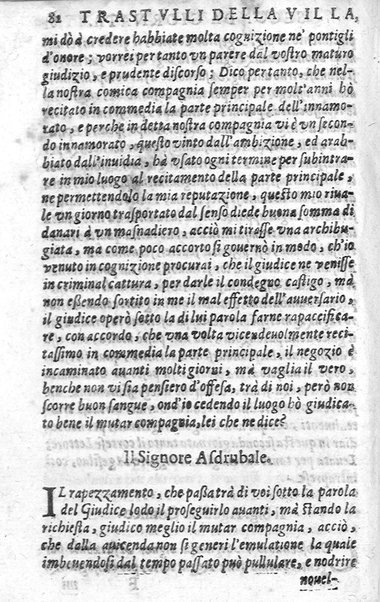 82 TRASTVLLI DELLA VILLA,
mi dò à credere habbiate molta cognizione ne' pontigli
d'onore; vorrei per tanto vn parere dal vostro maturo
giudizio, e prudente discorso; Dico per tanto, che nel-
la nostra comica compagnia semper per molt'anni hò
recitato in commedia la parte principale dell'innamo-
rato, e perche in detta nostra compagnia vi è vn secon-
do innamorato, questo vinto dall'ambizione, ed arab-
biato dall'inuidia, hà vsato ogni termine per subintra-
re in mio luogo al recitamento della parte principale,
ne permettendolo la mia reputazione, questo mio riua-
le vn giorno trasportato dal senso diede buona somma di
danari à vn masnadiero, acciò mi tirasse vna archibu-
giata, ma come poco accorto si gouernò in modo, ch'io
venuto in cognizione procurai, che il giudice ne venisse
in criminal cattura, per darle il condegno castigo, mà
non eßendo sortito in me il mal effetto dell'auuersario,
il giudice operò sotto la di lui parola farne rapaccifica-
re, con accordo, che vna volta vicendeuolmente reci-
tassimo in commedia la parte principale, il negozio è
incaminato auanti molti giorni, mà vaglia il vero,
benche non vi sia pensiero d'offesa, trà di noi, però non
scorre buon sangue, ond'io cedendo il luogo hò giudica-
to bene il mutar compagnia, lei che ne dice?
Il Signore Asdrubale.
IL rapezzamento, che paßa trà di voi sotto la parola
del Giudice lodo il proseguirlo auanti, mà stando la
richiesta, giudico meglio il mutar compagnia, acciò,
che dalla auicenda non si generi l'emulatione la quale
imbeuendosi dal tempo passato può pullulare, e nodrire
nouel-